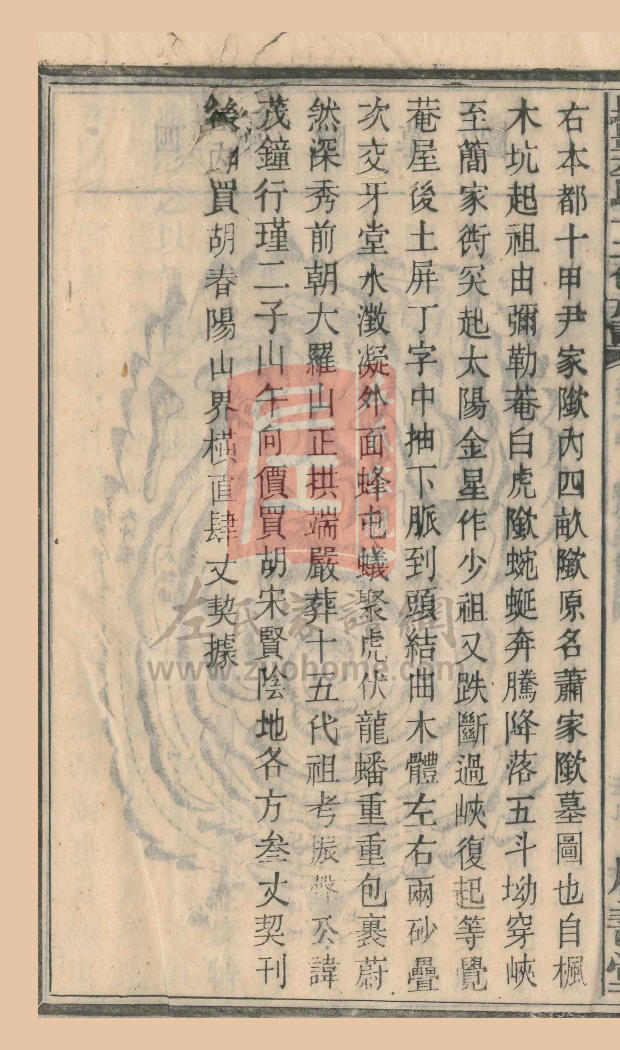 右本都十甲尹家隞內四畝隞原名蕭家隞墓圖也自楓
木坑起祖由彌勒菴白虎隞蜿蜒奔騰降落五斗坳穿峽
至簡家衖突起太陽金星作少祖又跌斷過峽復起等覺
菴屋後土屏丁字中抽下脈到頭結曲木體左右兩砂疊
次交牙堂水澂凝外面蜂屯蟻聚虎伏龍蟠重重包裹蔚
然深秀前朝大羅山正拱端嚴葬十五代祖考振聲公諱
茂鐘行瑾二子山午向價買胡宋賢陰地各方叁丈契刊
後 買胡春陽山界橫直肆丈契據
左氏家譜網
www.zuohome.com